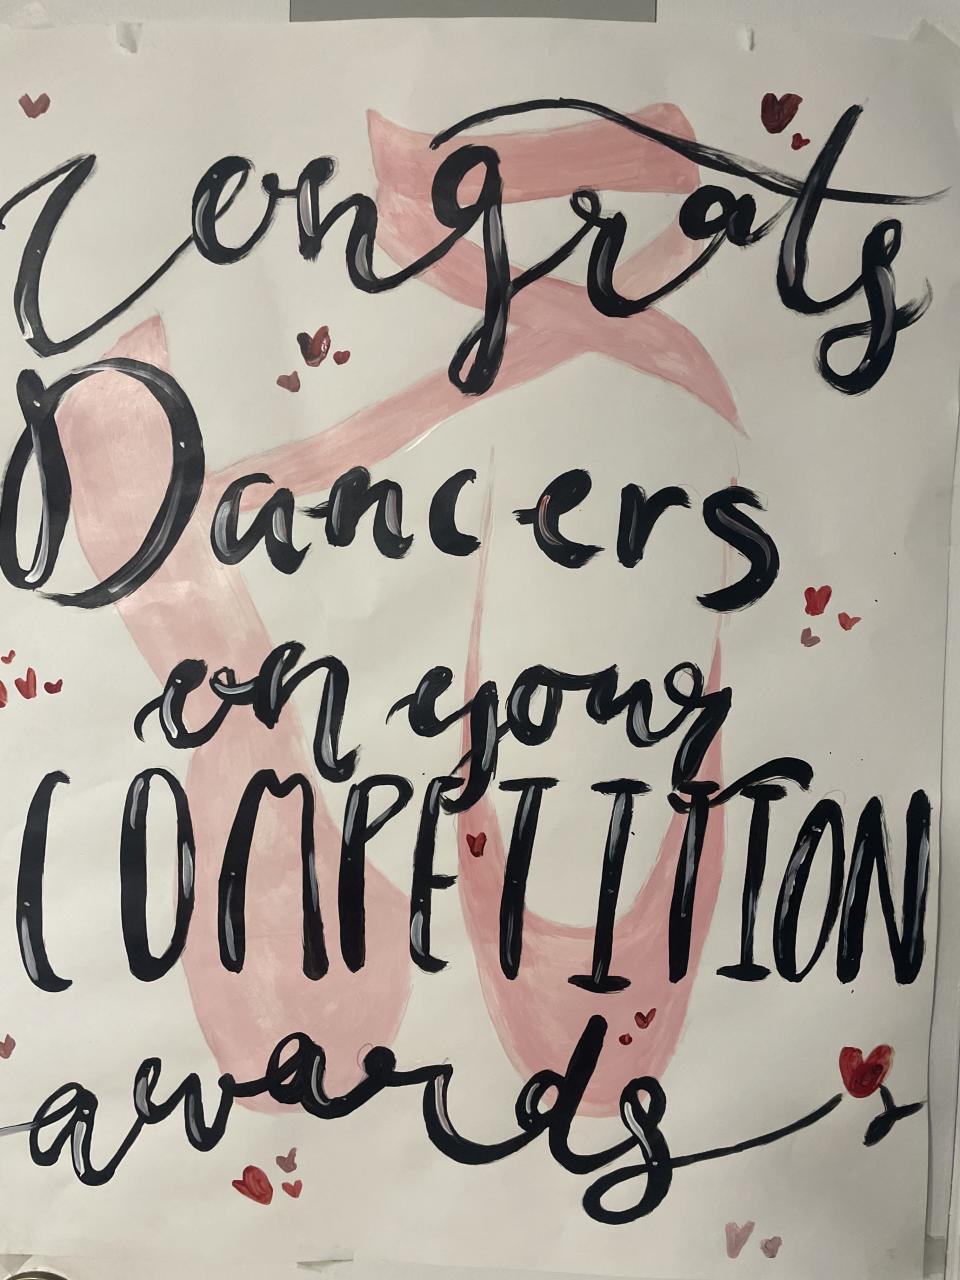 Congrats
Dancers
on your
COMPETITION
awards